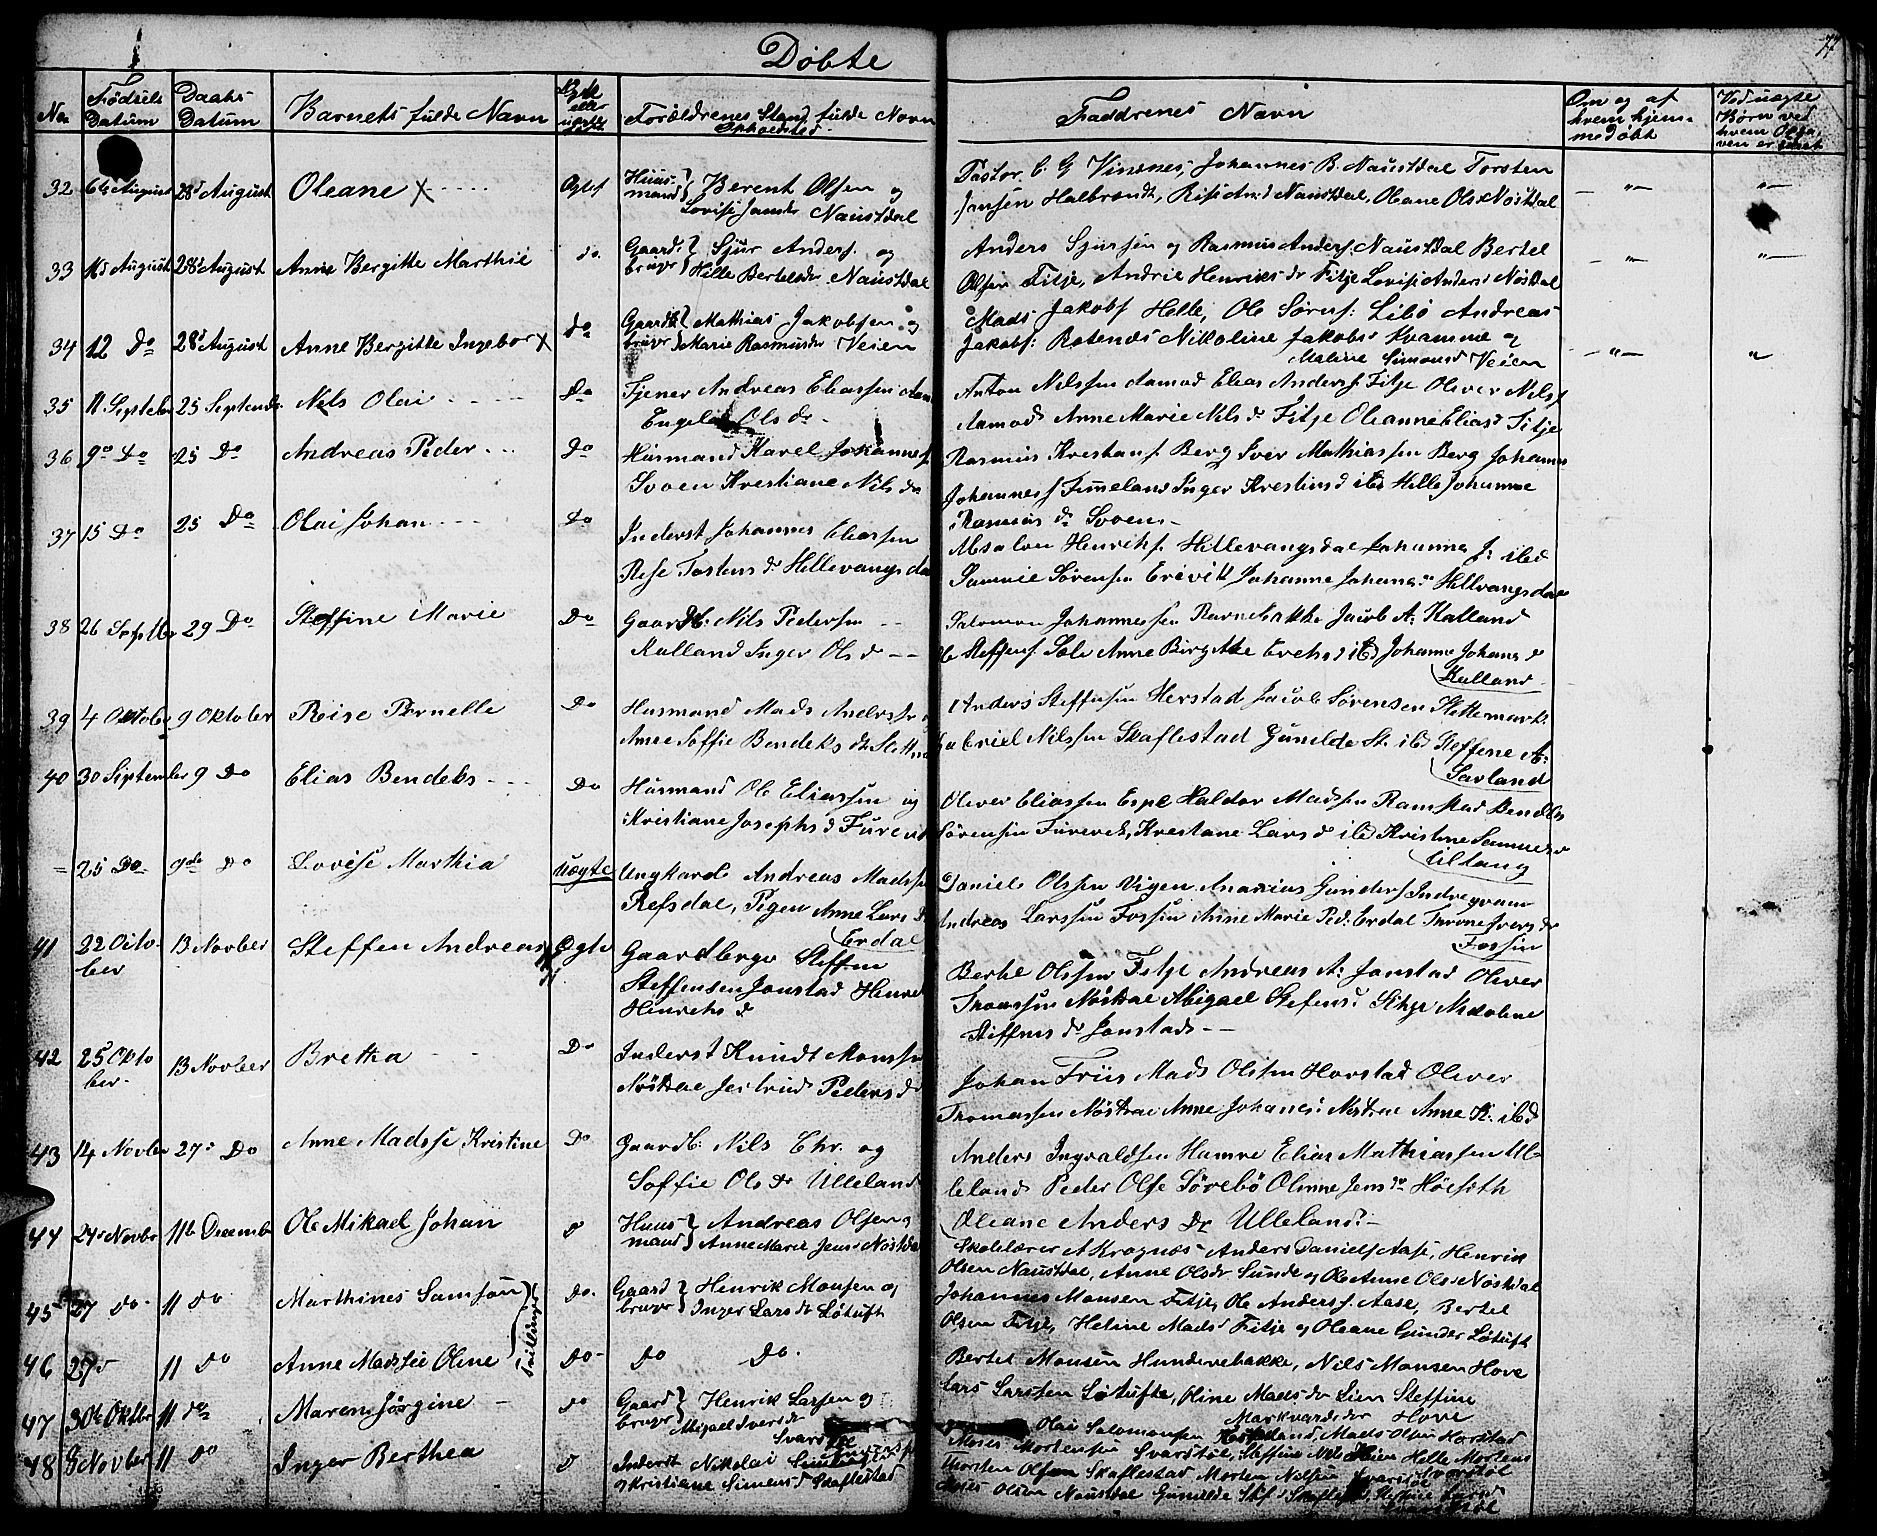 Døbte
77
No. Fødsels Datum Daabs Datum Barnets fulde Navn Ægte eller uægte Forældrenes Stand, fulde Navn Opholdsted Faddrenes Navn Om og af hvem hjem- medøbt Ved uægte Børn ved hvem Opga- ven er gjort
32 6te August 28d August Oleane X Ægtef Huus- mand } Berent Olsen og
Lovise Jansdr Naustdal
Pastor C. G Vinsnes, Johannes B. Naustdal Torsten
Jensen Halbrendt, Rise And. Naustdal, Oleane Olsd Nøstdal
33 16d August 28d August Anne Bergitte Marthie do. Gaard- bruger } Sjur Anders. og
Helle Bertelsdr Naustdal
Anders Sjursen og Rasmus Anders. Naustdal Bertel
Olsen Fitje, Andrie Henriksdr Fitje Lovise Andersd Nøstdal
34 12 Do 28d August Anne Bergitte Ingebor X do Gaardb bruger } Mathias Jakobsen og
Marie Rasmusdr Veien
Mads Jakobs Helle, Ole Sørens: Libø Andreas
Jakobs: Rotenes Nikoline Jakobs Kvamme og
Maline Simonsd Veien
35 11 Septeber 25 Septemb. Nils Olai Do Tjener Andreas Eliassen Aam
Engel Olsdr
Anton Nilssen Aamod Elias Anders. Fitje Oliver Nilss
Aamods Anne Marie Nilsdr Fitje Oleanne Elias d Fitje
36 9de Do 25 Do Andreas Peder Do Husmand Karel Johanness
Svoen Krestiane Nilsdr
Rasmus Krestans. Berg Iver Mathiassen Berg Johannes
Johanness Timeland Inger Krestensd ibd Helle Johanne
Rasmus dr Svoen
37 15 Do 25 Do Olai Johan Do Inderst Johannes Eliassen
Rise Tostensdr Hellevangsdal
Absalon Henriks. Hillevangsdal Johannes J: ibd
Sammie Sørensen Erevik Johanne Johans dr Hillvangsdal
38 26 Septber 29 Do Steffine Marie Do Gaardb: Nils Pedersen
Kalland Inger Olsd
Salomon Johannessen Ravnebakke Jacob A. Kalland
Ole Steffens. Sæle Anne Birgitte Erchsd ibd Johanne Johansd
Kalland
39 4 Oktober 9 Oktober Reise Pernelle Do Husmand Mads Anderss
Anne Soffie Bendeksdr
Anders Steffensen Herstad Jacob Sørensen Slettemark
Gabriel Nilssen Skaflestad Gunilde St. ibd Steffene A.
Savland
40 30 September 9 Do Elias Bendeks Do Husmand Ole Eliassen og
Kristiane Josephsd Furevik
Oliver Eliassen Espe Haldor Madsen Ramstad Bendeks
Sørensen Furevek, Krestane Larsd ibd Kristine Samuelsd
Eltang
= 25 Do 9de Do Lovise Marthia Uægte Ungkarl Andreas Madssen
Refsdal, Pigen Anne Larsd
Erdal
Daniel Olssen Vigen Ananias Gunders. Indregvam
Andreas Larssen Fossen Anne Marie Ped. Erdal Throne Iversdr
Fossen
41 22 Octo- ber 13 Novber Steffen Andreas Ægte Gaardbruger Steffen
Steffensen Jonstad Henre
Henreksd
Bertel Olssen Fitje Andreas A: Jonstad Oliver
Tromssen Nøstdal Abigael Stefensd Fitje Madalene
Steffensdr Jonstad
42 25 Okto ber 13 Novber Brethe Do Inderst Knudt Monssen
Nøstdal Jertrud Pedersdr
Johan Friis Mads Olssen Horstad Oliver
Tromassen Nøstdal Anne Johans: Nøstdal Anne K: ibd
43 14 Novber 27d Do Anne Madsse Kristine Do Gaardb: Nils Chr. og
Soffie Olsdr Ulleland
Anders Ingvaldsen Hamre Elias Mathiassen Ul-
leland Peder Olse Sørebø Olenne Jensdr Høiseth
Oleane Anders Dr Ulleland
44 24d Novbr 11te Decembr Ole Mikael Johan d Huus- mand } Andreas Olsen og
Anne Marie Jensd Nøstdal
Skolelærer A Kragnæs Anders Daniels Aase, Henrik
Olsen Naustdal, Anne Olsdr Sunde og Ole Anne Olsd Nøstdal
45 27 do 11 do Marthines Samson } Tvillinger do. Gaard bruger } Henrik Monsen og
Inger Larsdr Løtuft
Johannes Monsen Fitje, Ole Anders. Aase, Bertel
Olsen Fitje, Heline Madsd Fitje og Oleane Gunder Løtuft
46 27d 11 do Anne Madssei Oline do do do.
Bertel Monsen Hundvebakke, Nils Monsen Hove
Lars Larssen Løtufte, Oline Madsdr Lien Steffine
Markvardsdr Hove
47 30te Oktbr 11 do Maren Jørgine do Gaard bruger } Henrik Larsen og
Migael Iversdr
Svarstøl
Olai Salomonsen Mads Olsen Horstad
Moses Mortensen Svarstøl, Steffine Nilsd Lien Helle Mortens
Svarstøl
48 8 Novber 11 do Inger Berthea d Inderst Nikolai
og Kristiane Simensd Skaflestad
Thorsten Olsen Skaflestad Morten Nilsen Svarstøl
Moses Olsen Naustdal Gunilde